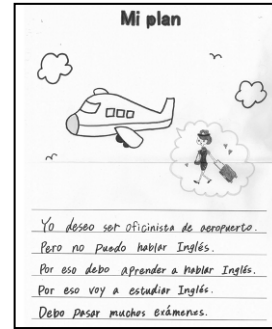 Mi plan
Yo deseo ser oficinista de aeropuerto.
Pero no puedo hablar Inglés.
Por eso debo aprender a hablar Inglés.
Por eso voy a estudiar Inglés.
Debo pasar muchos exámenes.